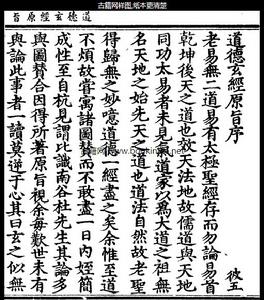 古籍网样图,纸本更清楚
道德玄經原旨
道德玄經原旨序 彼五
老易無二道易有太極聖經存而勿論易首
乾坤後天之道也效天法地故儒道與天地
同功太易者未見氣道家以爲大道之祖無
名天地之始先天之道也道法自然故老聖
得歸無之妙噫道德一經盡之矣余惟至道
不煩故嘗寓諸圖贊而不敢盡一日內姪簡
成性至自杭見謂比識南谷杜先生其論多
與圖贊合因得所著原旨視余每歎世未有
與論此事者一讀莫逆于心其曰玄之似無